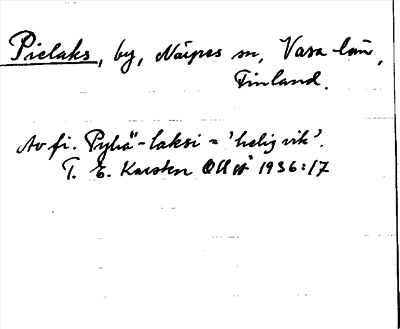 Pielaks, by, Närpes sn, Vasa län,
Finland.
Av fi. Pyhä-laksi = 'helig vik'.
T. E. Karsten 1936:17